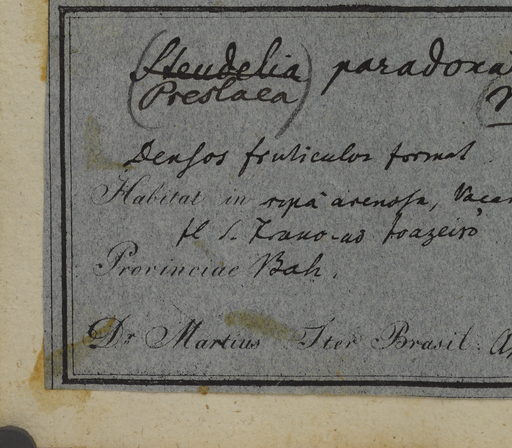 (Steudelia paradoxa
Preslaea)
Densos fruticulos format
Habitat in ripa arenosa,
ad Joazeiro
Provinciae Bah.
Dr Martius Iter Brasil.